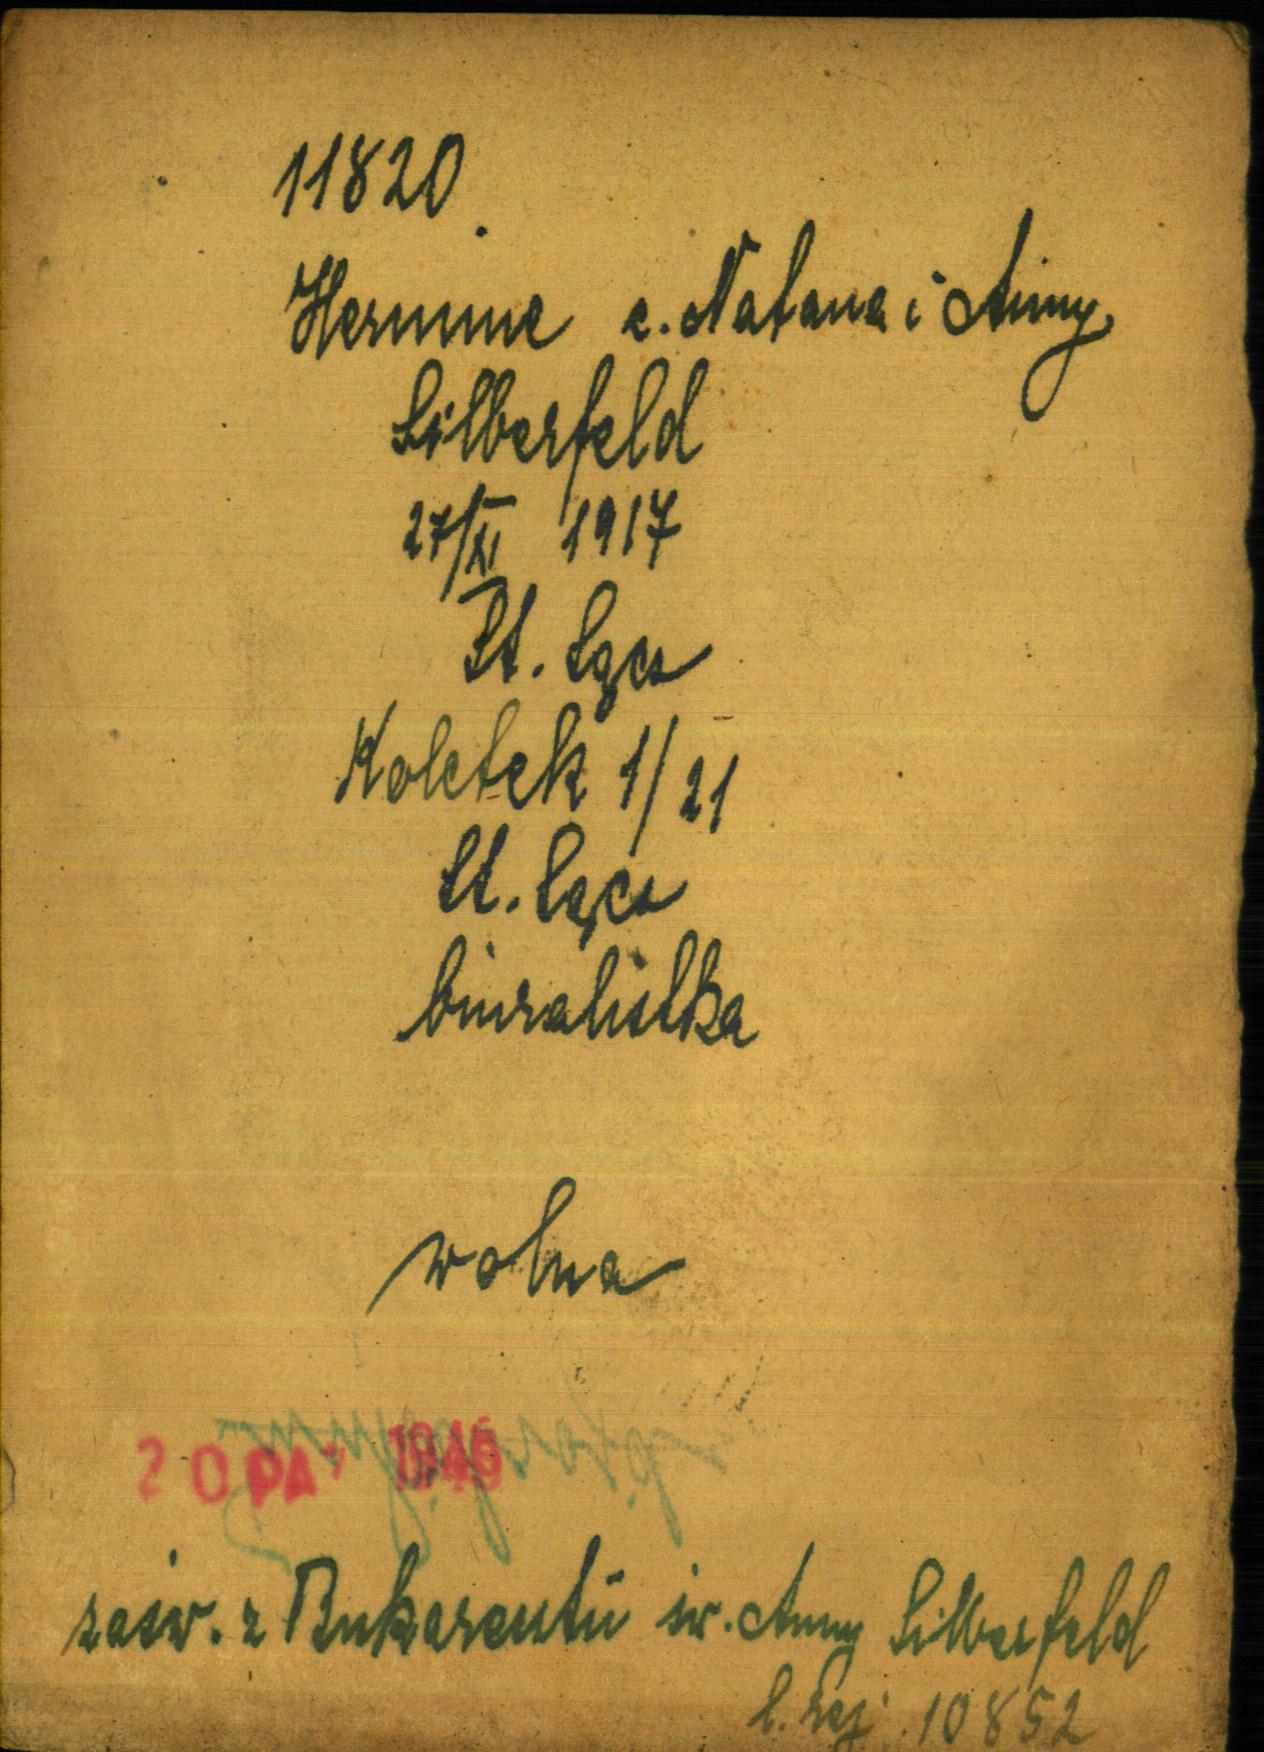 11820
Hermine c. Natana i Anny
Silberfeld
27/XI 1917
St. Sącz
Koletek 1/21
St. Sącz
biuralistka
wolna
20 PAŹ 1945
zaśw. z Bukaresztu św. Anny Silberfeld
l. rej. 10852